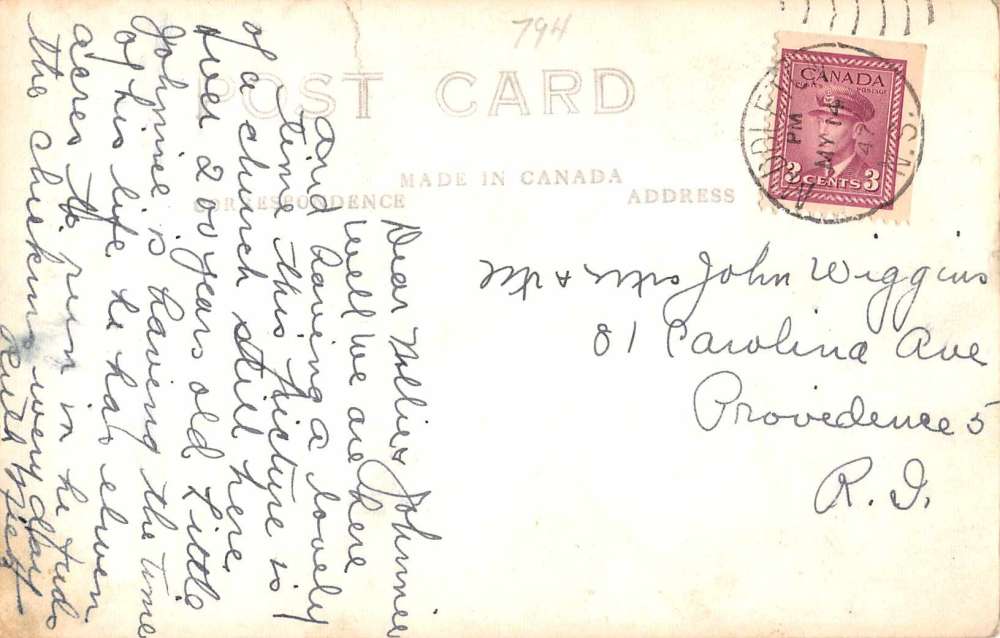 794
POST CARD
MADE IN CANADA
CORRESPONDENCE
ADDRESS
CANADA
POSTAGE
3 CENTS 3
PM
MY 14
47
N.S.
Dear Mollie & Johnnie
Well we are here
and having a lovely
time this picture is
of a church still here
over 200 years old Little
Johnnie is having the time
of his life he has eleven
acres to run in he
the chickens every day
Ruth
Mr & Mrs John Wiggins
81 Carolina Ave
Providence 5
R.I.